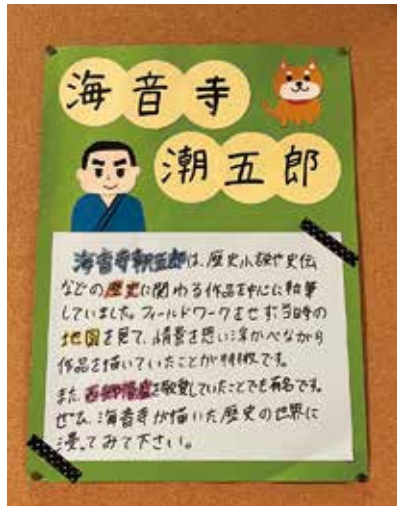 海音寺
潮五郎
海音寺潮五郎は、歴史小説や史伝
などの歴史に関わる作品を中心に執筆
していました。フィールドワークをせず、当時の
地図を見て、情景を思い浮かべながら
作品を描いていたことが特徴です。
また、西郷隆盛を敬愛していたことでも有名です。
ぜひ、海音寺が描いた歴史の世界に
浸ってみて下さい。